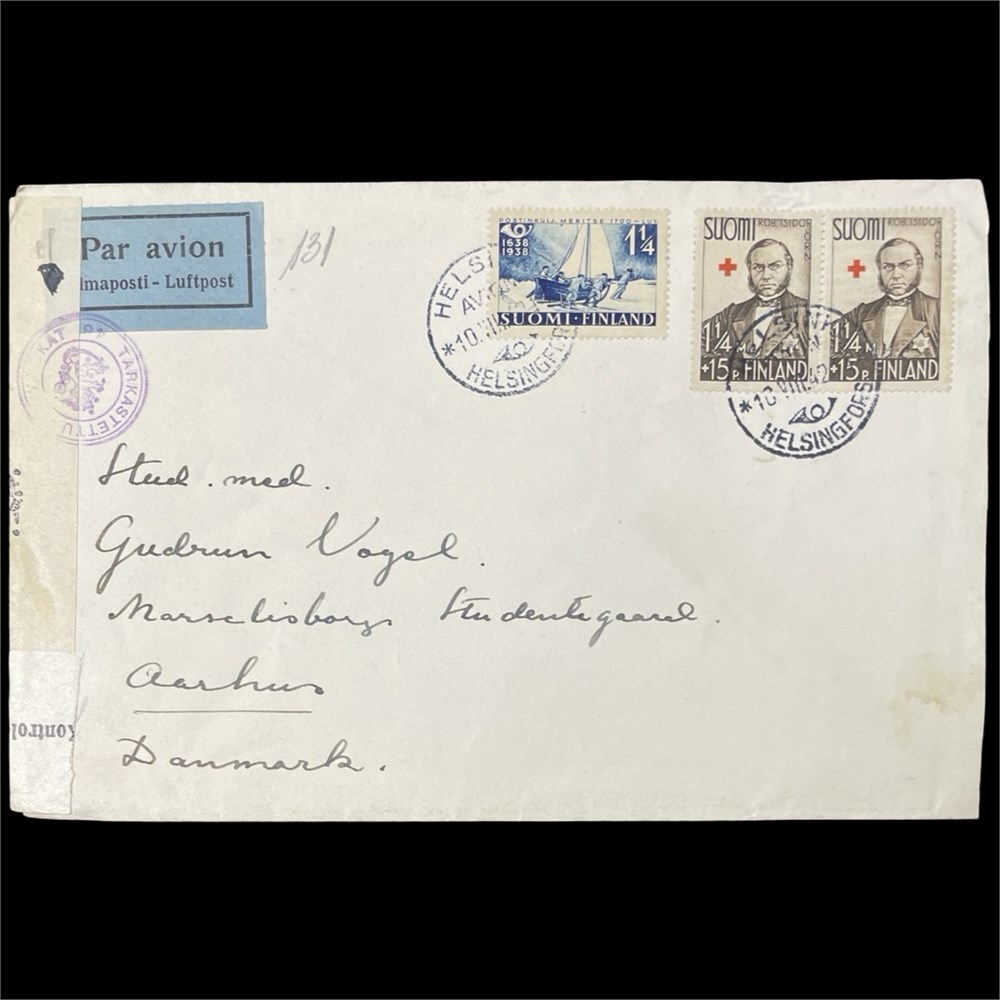 Par avion
maposti - Luftpost
131
POSTINKULJ. MERITSE 1700-LUV
1638
1938
1¼
SUOMI·FINLAND
HELSI
*10.VIII
HELSINGFORS
SUOMI ROB. ISIDOR ORN
1¼ M
+15 P. FINLAND
SUOMI ROB. ISIDOR ORN
1¼ M
+15 P. FINLAND
LSINK
*10.VIII.42
HELSINGFORS
KAT TARKASTETTU
Stud. med.
Gudrun Vogel.
Marselisborgs Studentegaard.
Aarhus
Danmark.
Kontrol